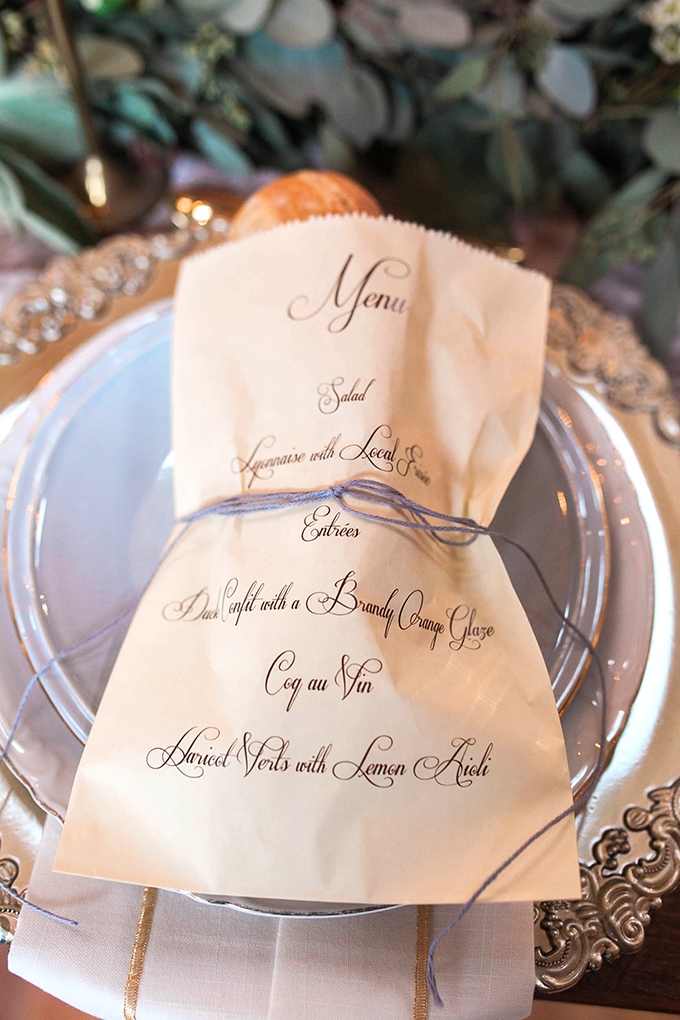 Menu
Salad
Lyonnaise with Local Frisée
Entrées
Duck Confit with a Brandy Orange Glaze
Coq au Vin
Haricot Verts with Lemon Aioli